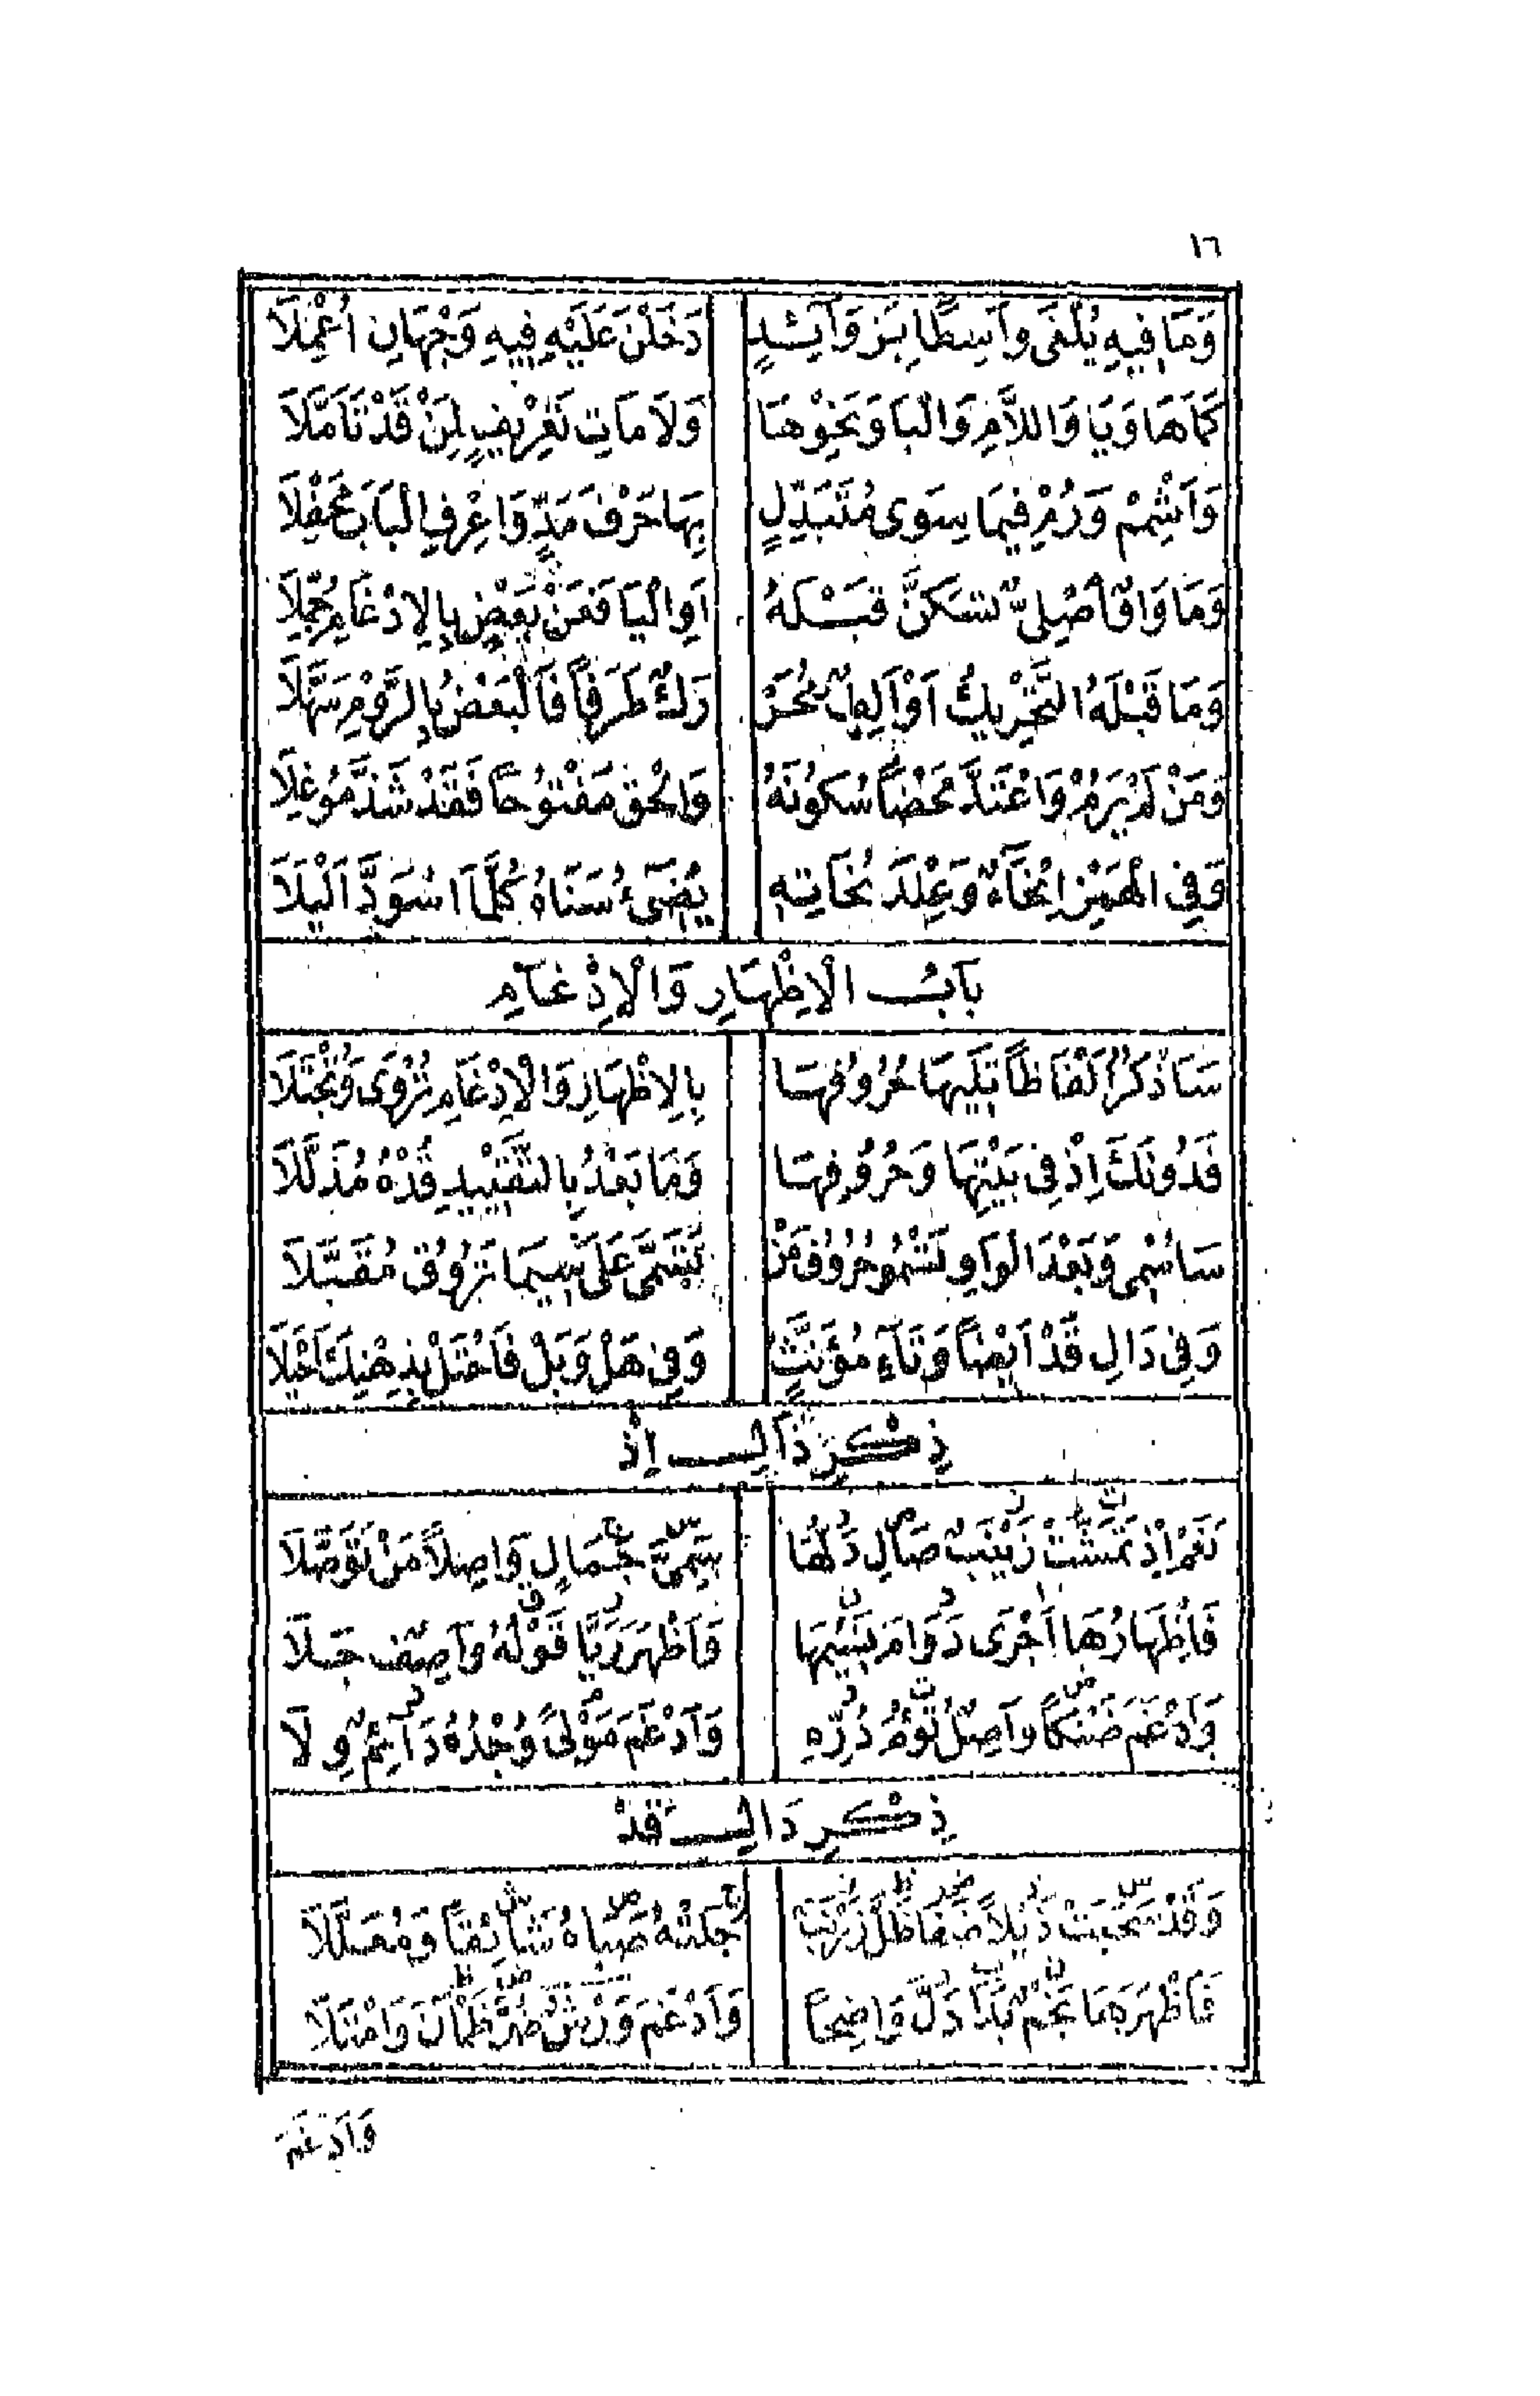 ١٦
وَمَا فِيهِ يُلْفَى وَاسِطًا بِزَوَائِدٍ دَخَلْنَ عَلَيْهِ فِيهِ وَجْهَانِ اُعْمِلَا
كَمَا هَا وَيَا وَاللَّامِ وَالْبَا وَنَحْوِهَا وَلَامَاتِ تَعْرِيفٍ لِمَنْ قَدْ تَاَمَّلَا
وَاَشْمِمْ وَرُمْ فِيمَا سِوَى مُتَبَدِّلٍ بِهَا حَرْفَ مَدٍّ وَاعْرِفِ الْبَابَ مَحْفِلَا
وَمَا وَاوٌ اَصْلِىٌّ تَسَكَّنَ قَبْلَهُ اَوِ الْيَا فَعَنْ بَعْضٍ بِالِادْغَامِ حُمِّلَا
وَمَا قَبْلَهُ التَّحْرِيكُ اَوْ اَلِفٌ مُحَرْ رَكٌ طَرَفًا فَالْبَعْضُ بِالرَّوْمِ سَهَّلَا
وَمَنْ لَمْ يَرُمْ وَاعْتَدَّ مَحْضًا سُكُونَهُ وَاَلْحَقَ مَفْتُوحًا فَقَدْ شَذَّ مُوغِلَا
وَفِى الْهَمْزِ اَنْحَاءٌ وَعِنْدَ نُحَاتِهِ يُضِىءُ سَنَاهُ كُلَّمَا اسْوَدَّ اَلْيَلَا
بَابُ الْاِظْهَارِ وَالْاِدْغَامِ
سَاَذْكُرُ اَلْفَاظًا تَلِيهَا حُرُوفُهَا بِالِاظْهَارِ وَالْاِدْغَامِ تُرْوَى وَتُجْتَلَا
فَدُونَكَ اِذْ فِى بَيْتِهَا وَحُرُوفِهَا وَمَا بَعْدُ بِالتَّقْيِيدِ قُدْهُ مُذَلَّلَا
سَاُسْمِى وَبَعْدَ الْوَاوِ تَسْمُو حُرُوفُ مَنْ تَسَمَّى عَلَى سِيمَا تَرُوقُ مُقَبَّلَا
وَفِى دَالِ قَدْ اَيْضًا وَتَاءِ مُؤَنَّثٍ وَفِى هَلْ وَبَلْ فَاحْتَلْ بِذِهْنِكَ اَحْيَلَا
ذِكْرُ ذَالِ اِذْ
نَعَمْ اِذْ تَمَشَّتْ زَيْنَبٌ صَالَ دَلُّهَا سَمِىَّ جَمَالٍ وَاصِلًا مَنْ تَوَصَّلَا
فَاِظْهَارُهَا اَجْرَى دَوَامَ نَسِيمِهَا وَاَظْهَرَ رَيَّا قَوْلِهِ وَاصِفٌ جَلَا
وَاَدْغَمَ ضَنْكًا وَاصِلٌ تُوْمُ دُرِّهِ وَاَدْغَمَ مَوْلًى وُجْدُهُ دَائِمٌ وِلَا
ذِكْرُ دَالِ قَدْ
وَقَدْ سَحَبَتْ ذَيْلًا ضَفَا ظَلَّ زَرْنَبٌ جَلَتْهُ صَبَاهُ شَائِقًا وَمُعَلَّلَا
فَاَظْهَرَهَا نَجْمٌ بَدَا دَلَّ وَاضِحًا وَاَدْغَمَ وَرْشٌ ضَرَّ ظَمْاٰنَ وَامْتَلَا
وَاَدْغَمَ